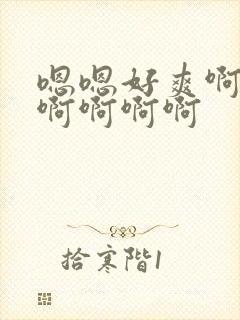 嗯嗯好爽啊
啊啊啊啊
拾寒階1